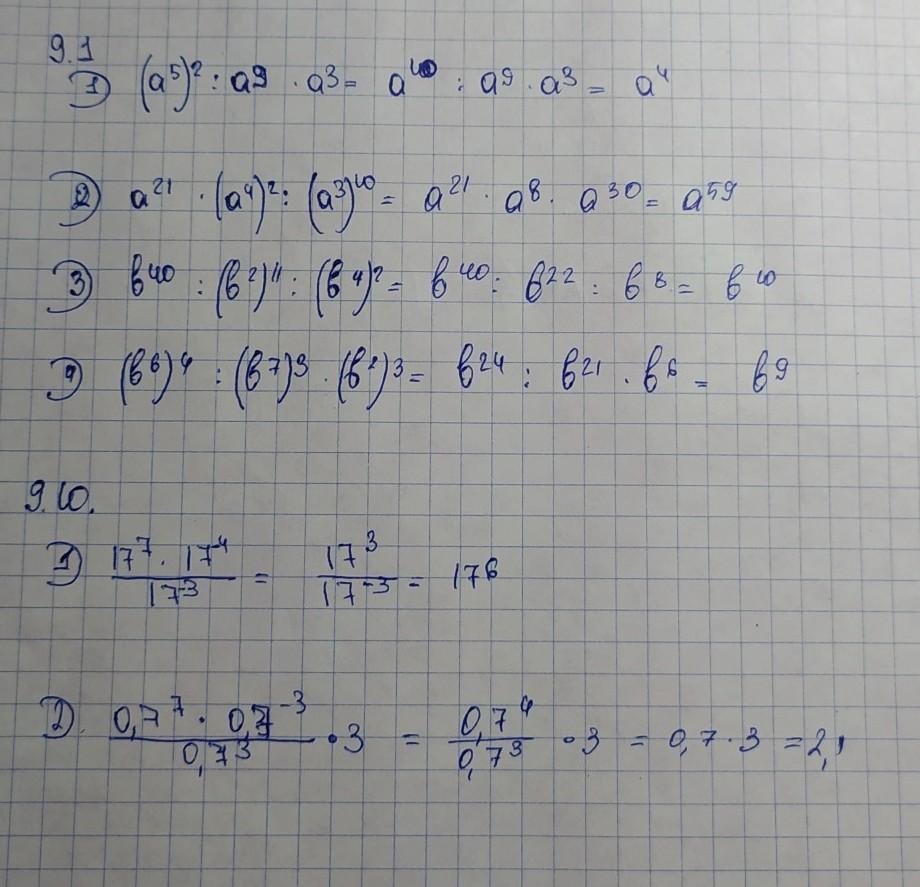 9.1
1) (a⁵)² : a⁹ · a³ = a¹⁰ : a⁹ · a³ = a⁴
2) a²¹ · (a⁴)² : (a³)¹⁰ = a²¹ · a⁸ · a³⁰ = a⁵⁹
3) в⁴⁰ : (в²)¹¹ : (в⁴)² = в⁴⁰ : в²² : в⁸ = в¹⁰
4) (в⁶)⁴ : (в⁷)³ · (в²)³ = в²⁴ : в²¹ · в⁶ = в⁹
9.10.
1) (17⁷ · 17⁴)/(17⁻³) = 17³/17⁻³ = 17⁶
2) (0,7⁷ · 0,7⁻³)/(0,7³) · 3 = 0,7⁴/0,7³ · 3 = 0,7 · 3 = 2,1